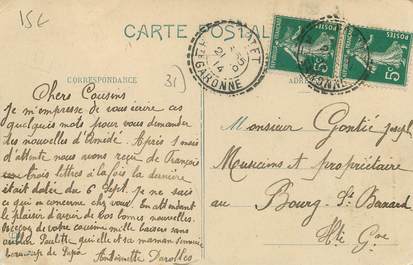 15€
CARTE POSTALE
CORRESPONDANCE
31
GARONNE
POSTES
5c
POSTES
5c
Chers Cousins
Je m'empresse de vous écrire ces
quelques mots pour vous demander
des nouvelles d'Amédé. Après 1 mois
d'attente nous avons reçu de François
trois lettres à la fois la dernière
était datée du 6 Sept. Je ne sais
ce qui en concerne chez vous. En attendant
le plaisir d'avoir de vos bonnes nouvelles.
Recevez de votre cousine mille baisers sans
oublier Paulette qu'elle et sa maman
beaucoup de
Antoinette
Monsieur Gontié Joseph
Musicien et propriétaire
au
Bourg St Bernard
Hte Gne